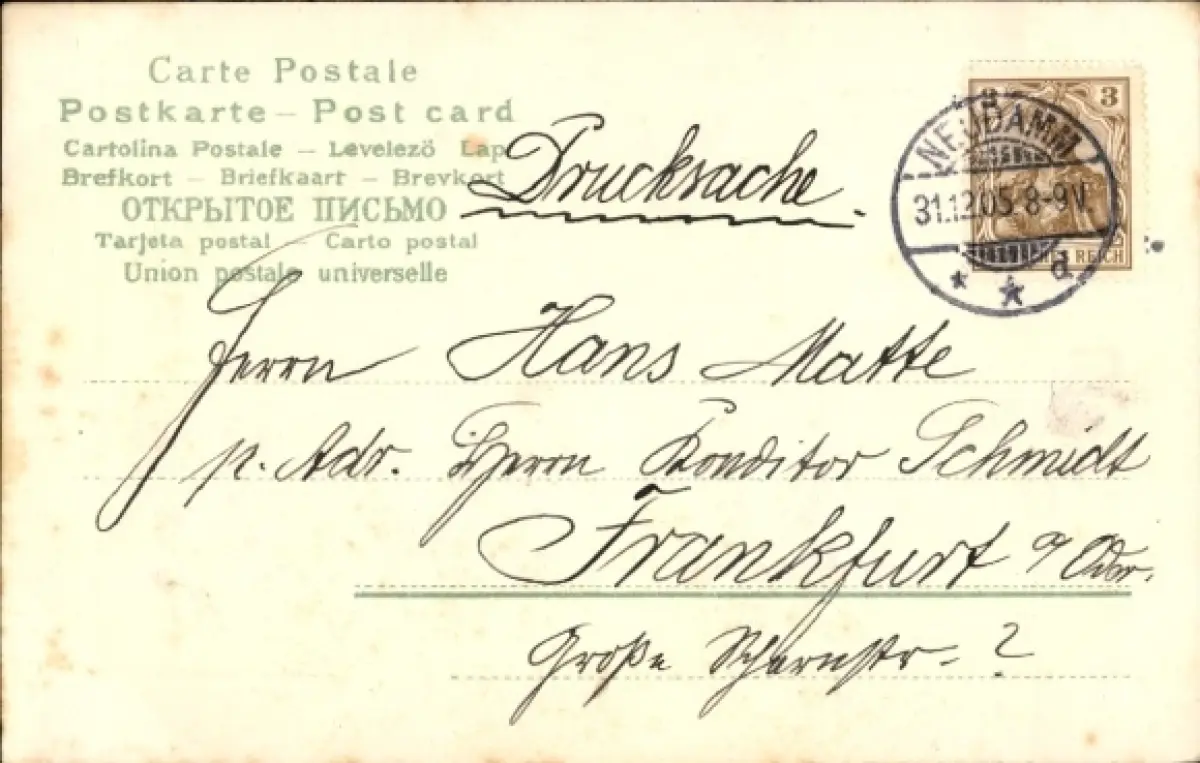 Carte Postale
Postkarte – Post card
Cartolina Postale – Levelezö Lap
Brefkort – Briefkaart – Brevkort
ОТКРЫТОЕ ПИСЬМО
Tarjeta postal – Carto postal
Union postale universelle
Drucksache.
3 3
NEUDAMM
31.12.05.8-9V.
* * d
REICH
Herrn Hans Matte
p. Adr. Herrn Konditor Schmidt
Frankfurt a Oder.
Große Scharrnstr. ?